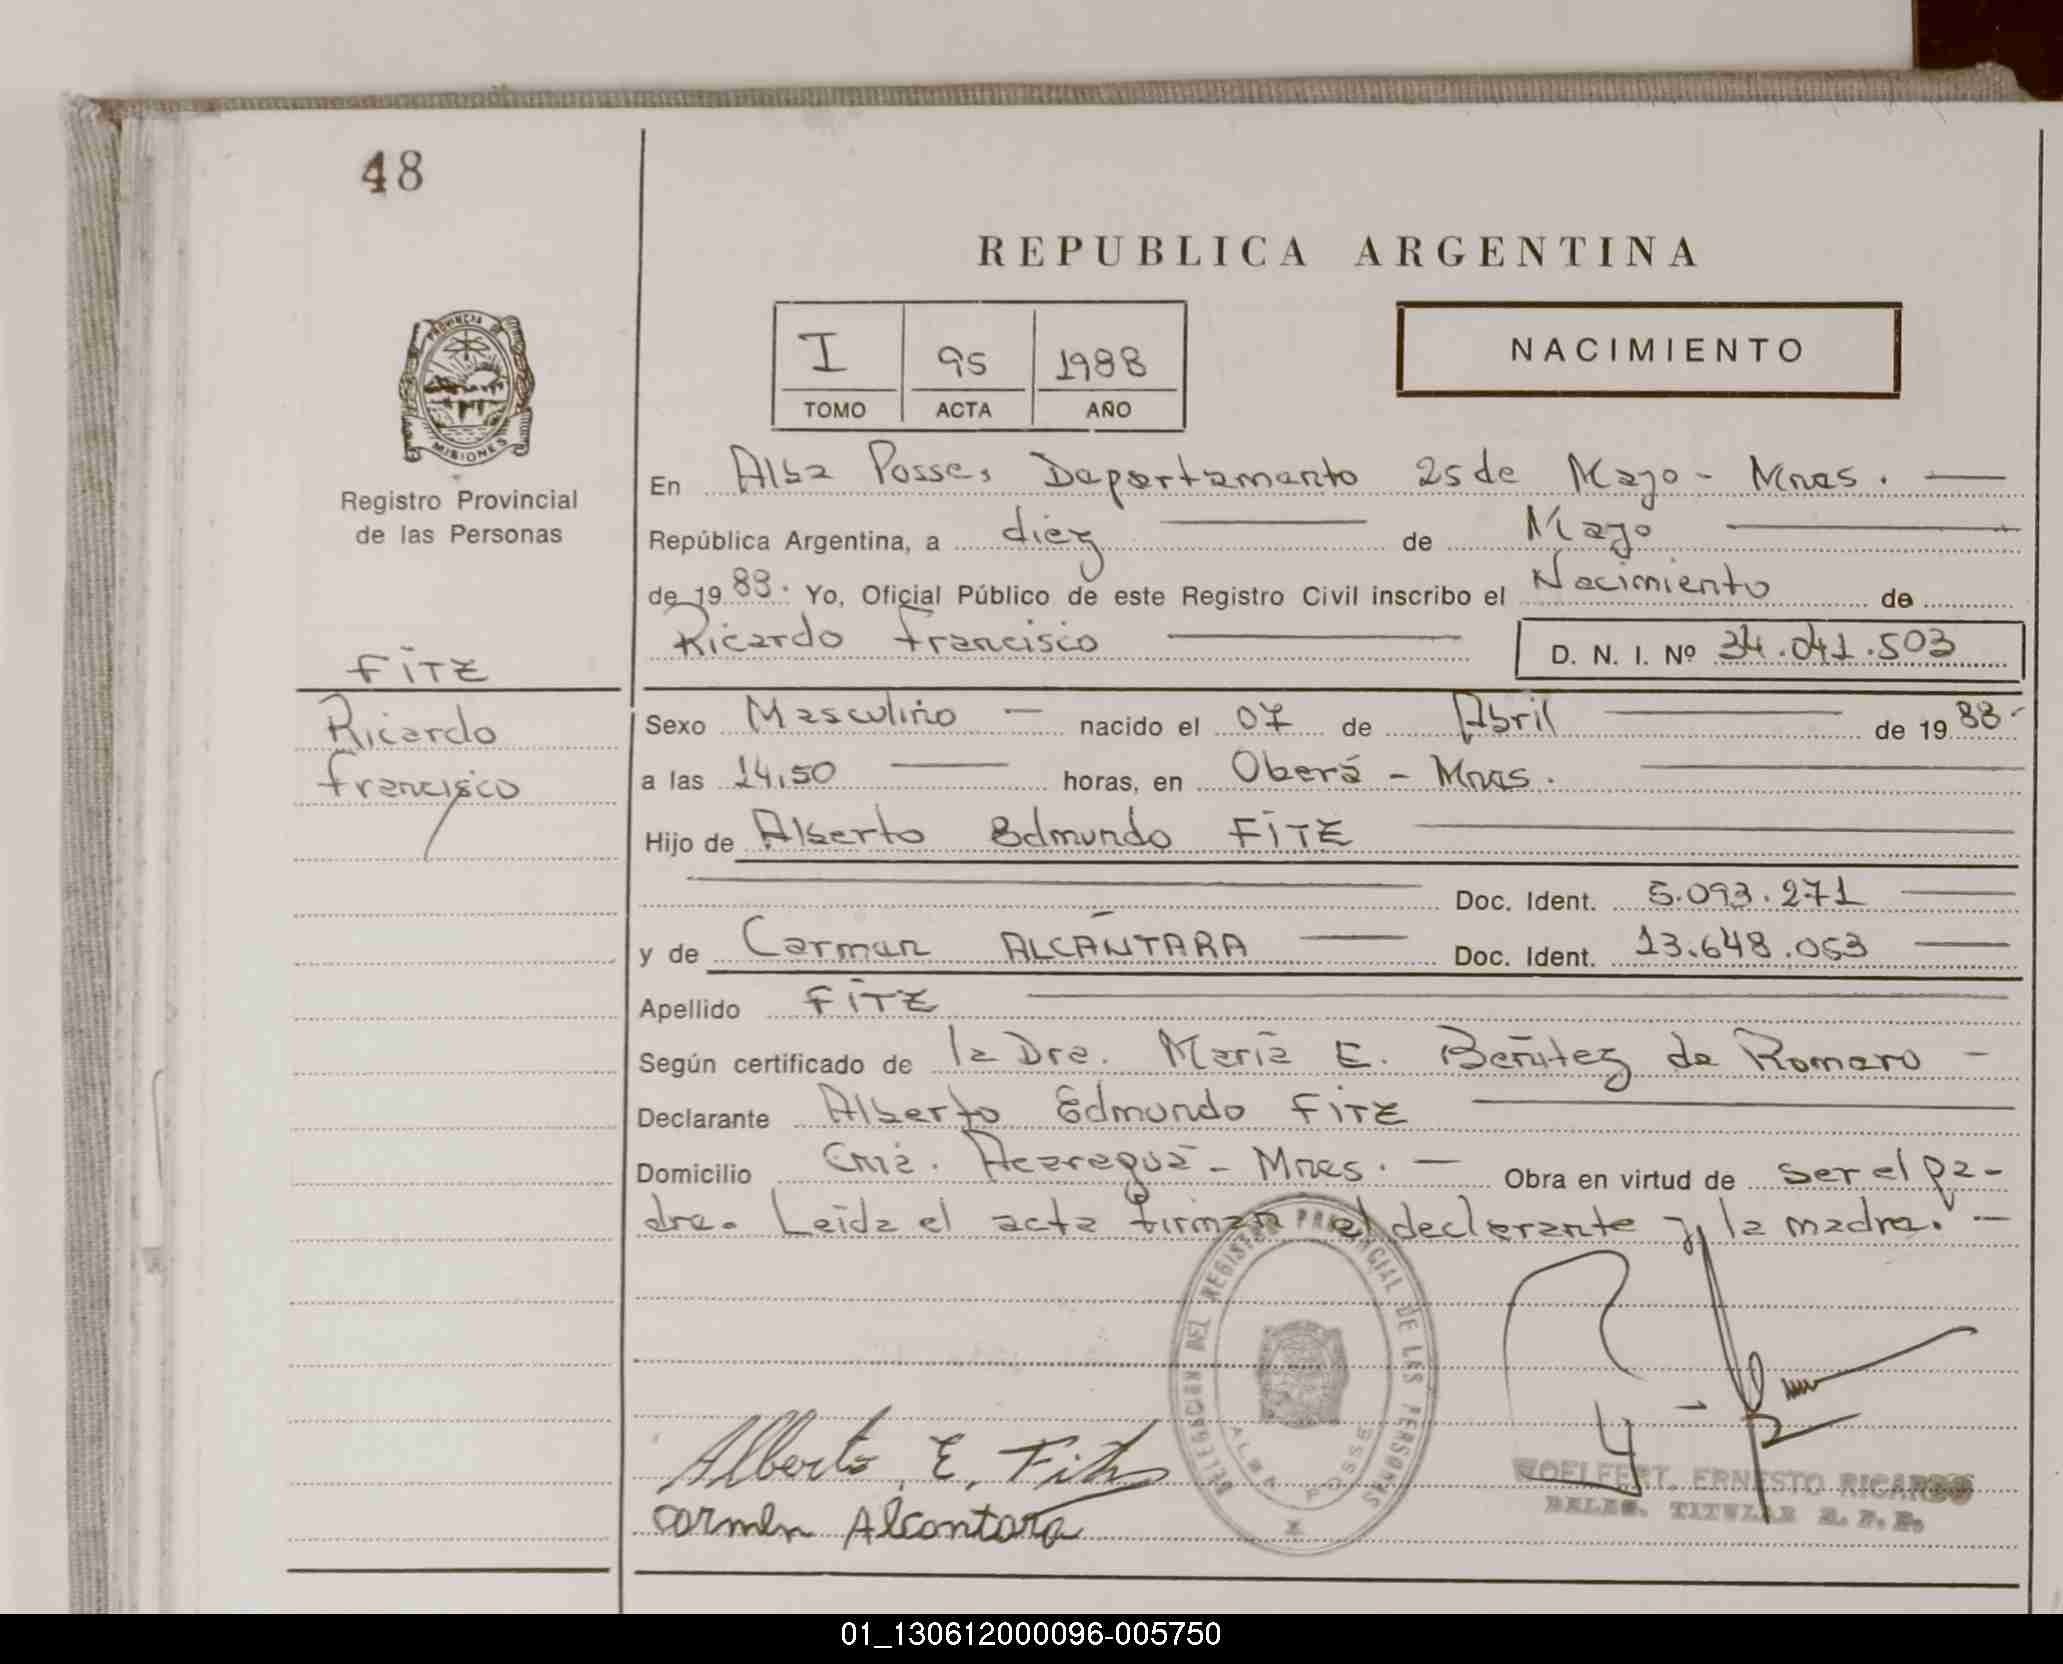 48
REPUBLICA ARGENTINA
I 95 1988
TOMO ACTA AÑO
NACIMIENTO
PROVINCIA DE
MISIONES
Registro Provincial
de las Personas
FITZ
Ricardo
Francisco
En Alba Posse, Departamento 25 de Mayo - Mnes.
República Argentina, a diez de Mayo
de 1988. Yo, Oficial Público de este Registro Civil inscribo el Nacimiento de
Ricardo Francisco D. N. I. Nº 34.041.503
Sexo Masculino nacido el 07 de Abril de 1988
a las 14,50 horas, en Oberá - Mnes.
Hijo de Alberto Edmundo FITZ
Doc. Ident. 5.093.271
y de Carmen ALCÁNTARA Doc. Ident. 13.648.053
Apellido FITZ
Según certificado de la Dra. María E. Beñitez de Romero
Declarante Alberto Edmundo FITZ
Domicilio Cnia. Acaraguá - Mnes. Obra en virtud de ser el pa-
dre. Leída el acta firman el declarante y la madre.
DELEGACION DEL REGISTRO PROVINCIAL DE LAS PERSONAS
ALBA POSSE
Alberto E. Fitz
Carmen Alcantara
WOELFERT, ERNESTO RICARDO
DELEG. TITULAR R. P. P.
01_130612000096-005750